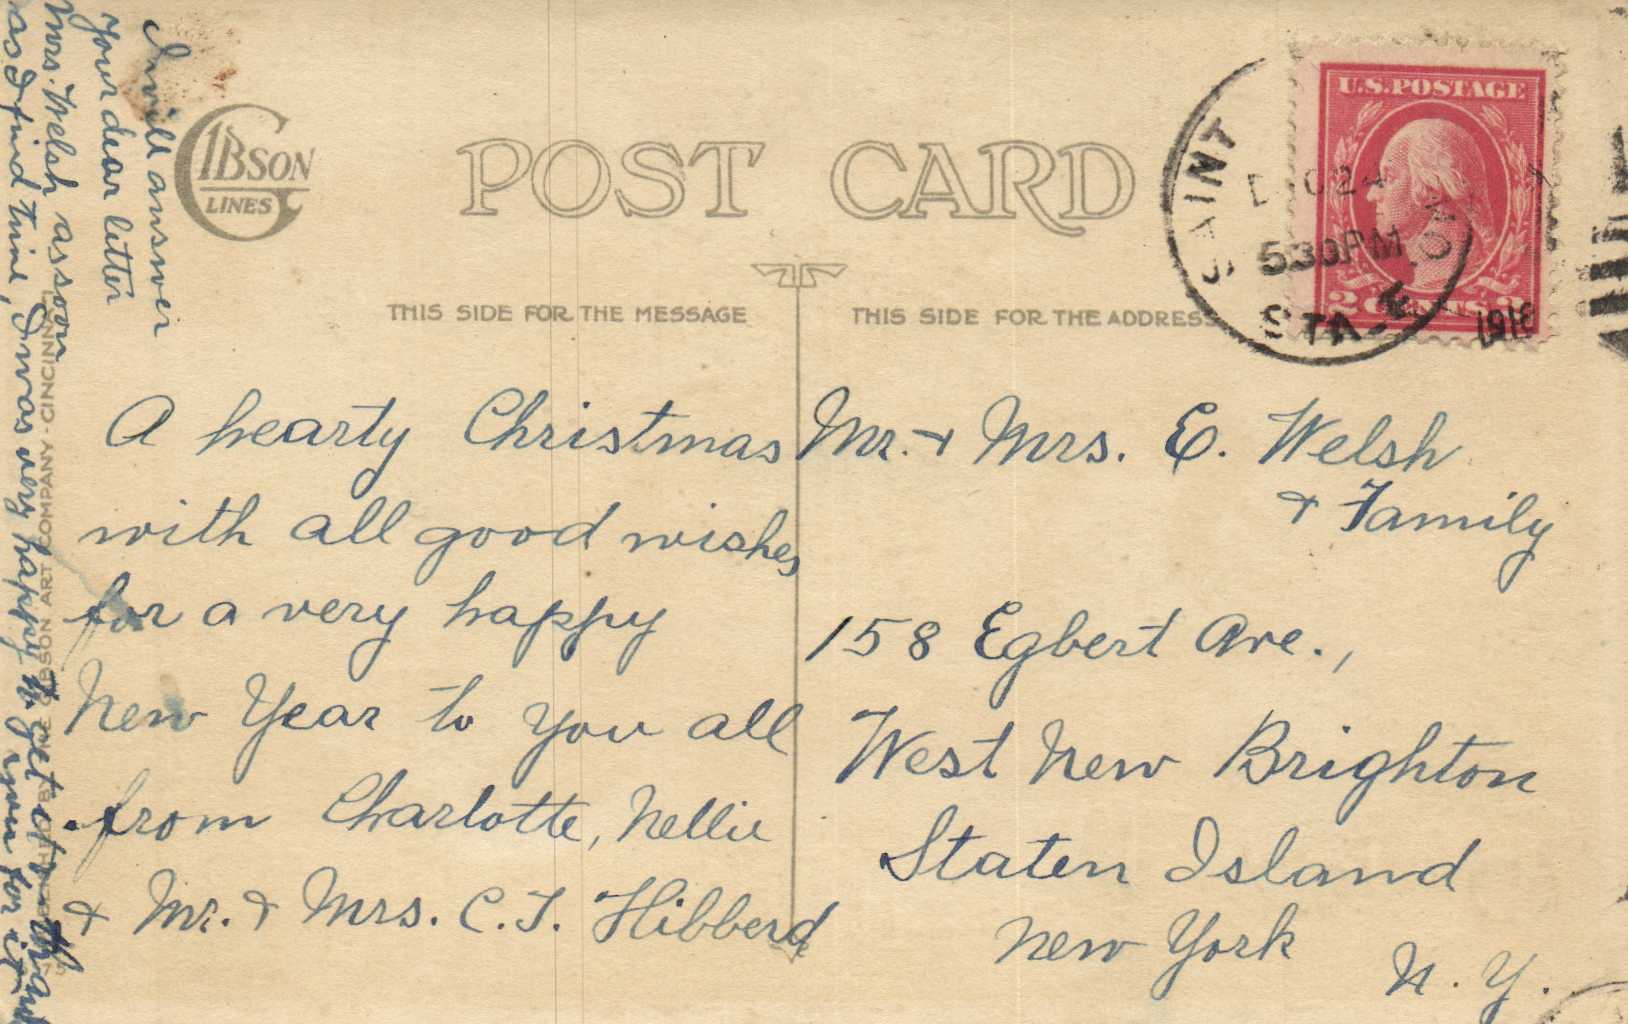 I will answer
Your dear letter
Mrs. Welsh as soon
as I find time, I was very happy to get it & thank
you for it
GIBSON
LINES
POST CARD
THIS SIDE FOR THE MESSAGE
THIS SIDE FOR THE ADDRESS
U.S. POSTAGE
2 CENTS 2
SAINT
DEC 24
5 30 PM
STA.
1918
A hearty Christmas
with all good wishes
for a very happy
New Year to you all
from Charlotte, Nellie
& Mr. & Mrs. C. T. Hibberd
Mr. & Mrs. E. Welsh
& Family
158 Egbert Ave.,
West New Brighton
Staten Island
New York N. Y.
GIBSON ART COMPANY - CINCINNATI